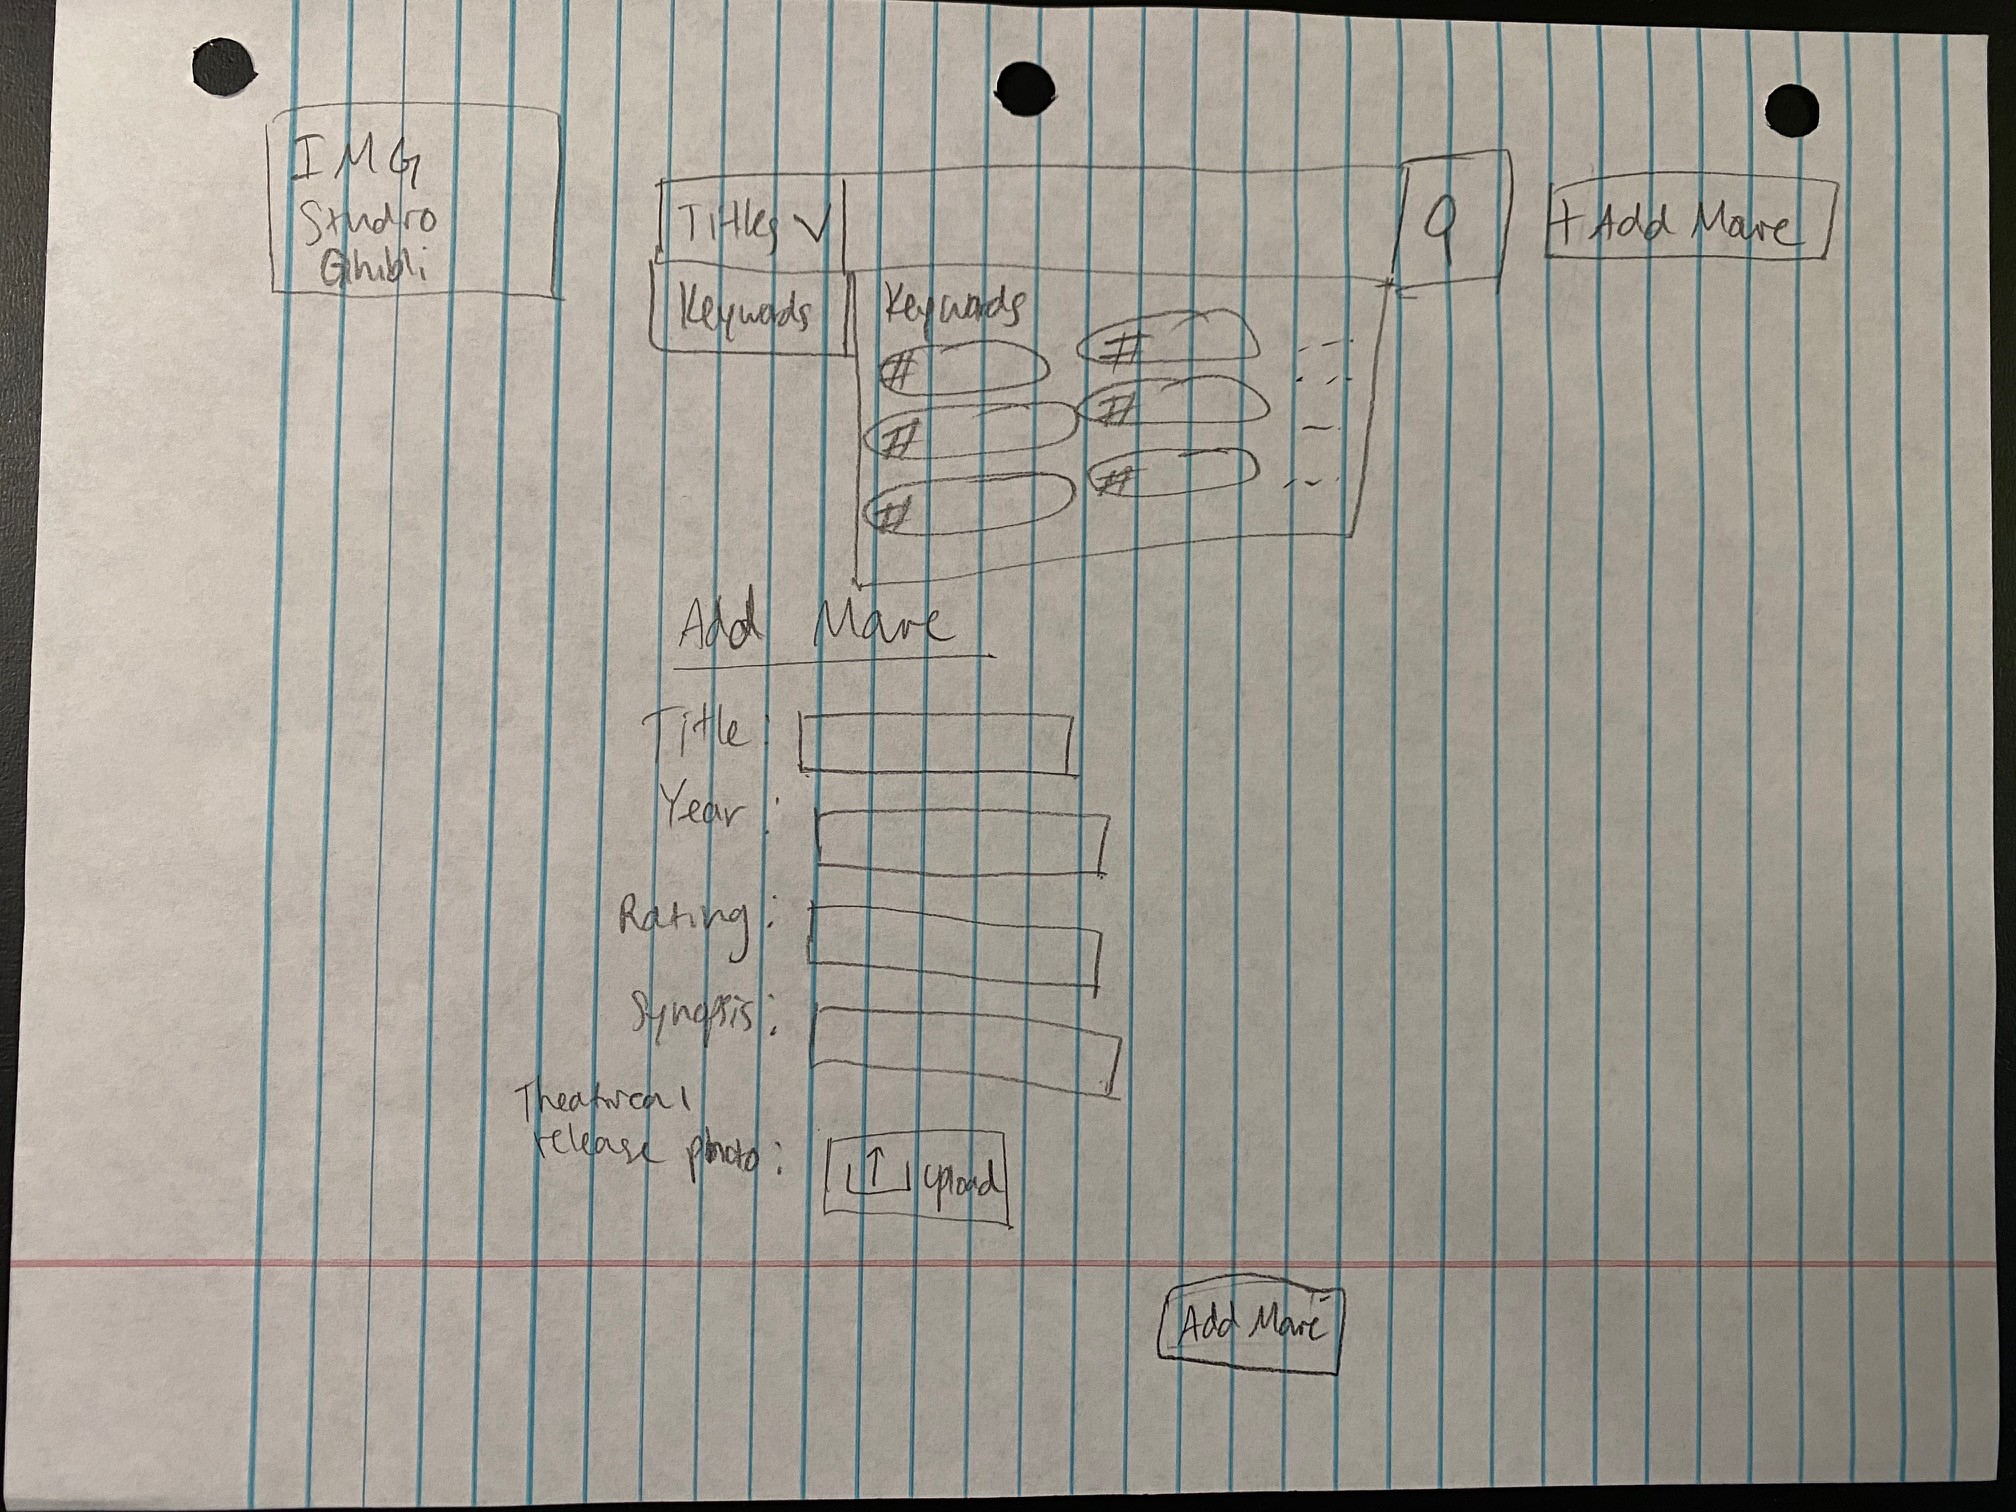 IMG
Studio
Ghibli
Titles
+ Add Movie
Keywords
Keywords
#
#
#
#
#
#
Add Movie
Title:
Year:
Rating:
Synopsis:
Theatrical
release photo:
upload
Add Movie